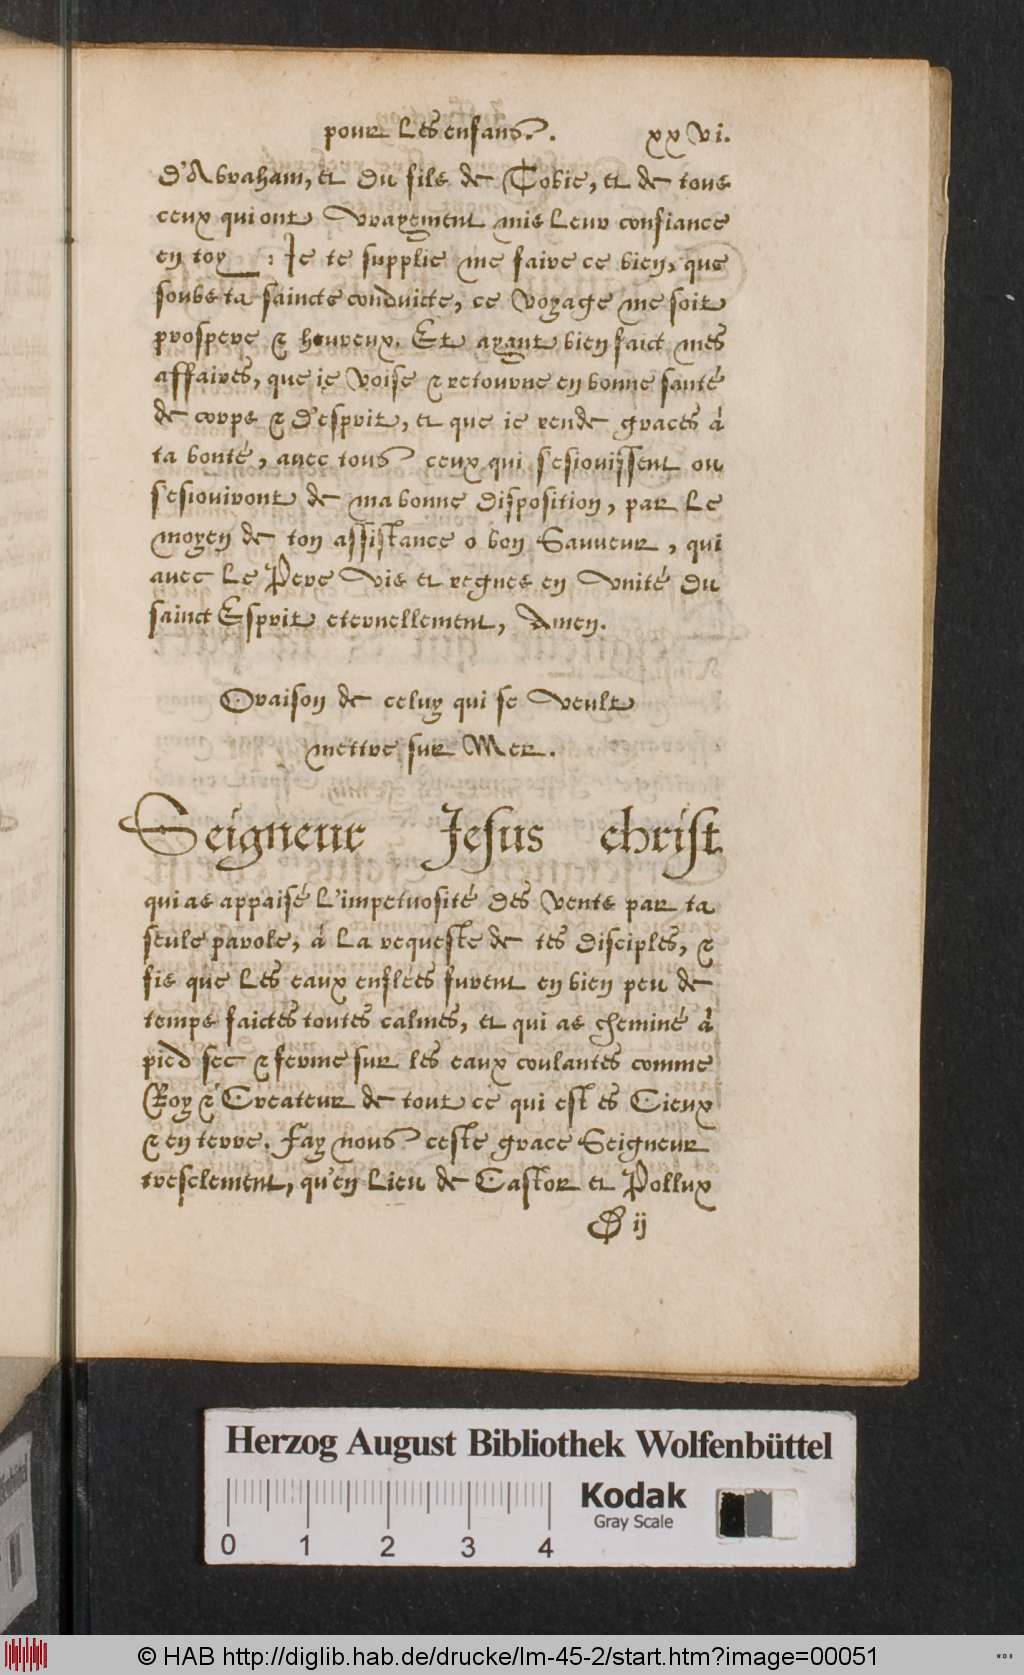 pour les enfans. xxvi.
D'Abraham, et du filz de Tobie, et de tous
ceux qui ont vrayement mis leur confiance
en toy : Je te supplie me faire ce bien, que
soubs ta saincte conduicte, ce voyage me soit
prospere & heureux. Et ayant bien faict mes
affaires, que ie voise & retourne en bonne santé
de corps & d'esprit, et que ie rende graces à
ta bonté, avec tous ceux qui s'esiouissent ou
s'esiouiront de ma bonne disposition, par le
moyen de ton assistance o bon Sauveur, qui
avec le Pere vis et regnes en unité du
sainct Esprit eternellement, Amen.
Oraison de celuy qui se veult
mettre sur Mer.
Seigneur Jesus christ
qui as appaisé l'impetuosité des vents par ta
seule parole, à la requeste de tes disciples, &
fis que les eaux enflees furent en bien peu de
temps faictes toutes calmes, et qui as cheminé à
pied sec & ferme sur les eaux coulantes comme
Roy & Createur de tout ce qui est es Cieux
& en terre. Fay nous ceste grace Seigneur
tresclement, qu'en lieu de Castor et Pollux
D ij
Herzog August Bibliothek Wolfenbüttel
Kodak
Gray Scale
0 1 2 3 4
© HAB http://diglib.hab.de/drucke/lm-45-2/start.htm?image=00051